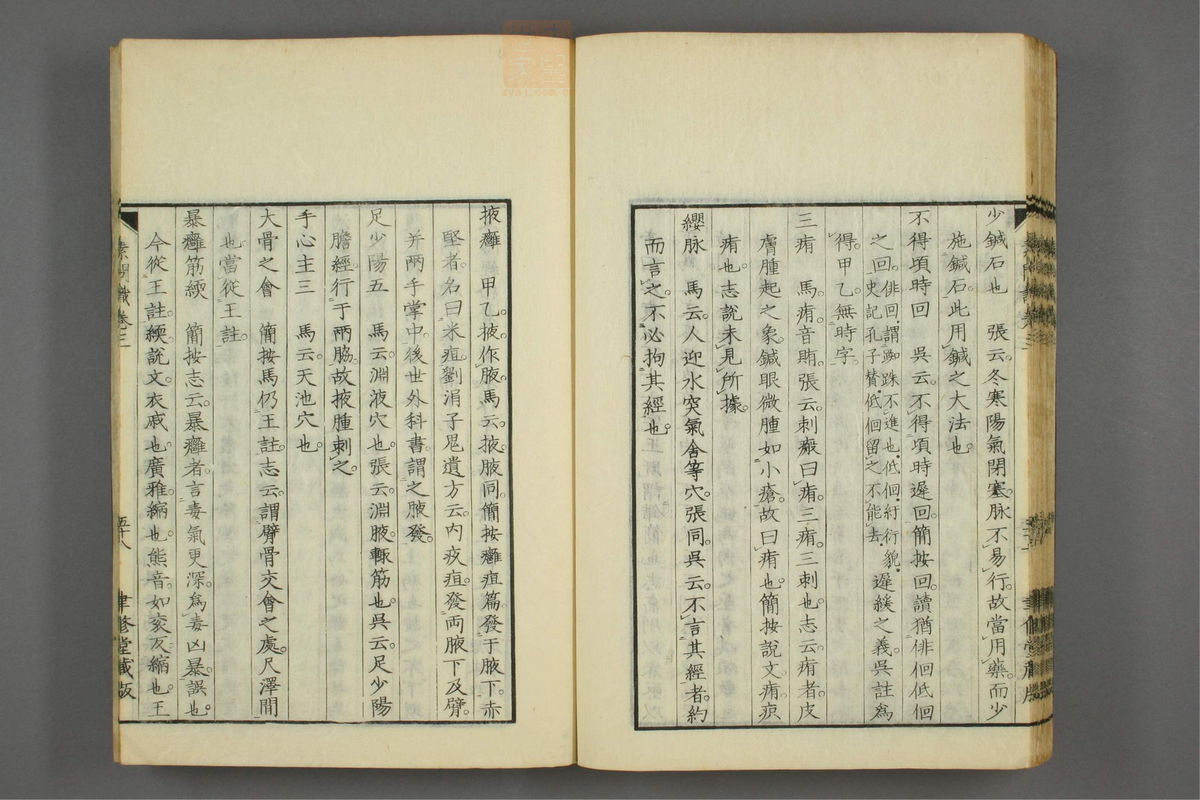 少鍼石也　張云冬寒陽氣閉塞脉不易行故當用藥而少
施鍼石此用鍼之大法也
不得頃時回　吳云不得項時遲回簡按回讀猶俳佪低佪
之回俳回謂踟跦不進也低佪紆衍貌遲緩之義吳註為
史記孔子賛低回留之不能去
得甲乙無時字
三痏　馬痏音賄張云刺瘢曰痏三痏三刺也志云痏者皮
膚腫起之象鍼眼微腫如小瘡故曰痏也簡按說文痏疻
痏也志說未見所據
纓脉　馬云人迎水突氣舍等穴張同吳云不言其經者約
而言之不必拘其經也
掖癰　甲乙掖作腋馬云掖腋同簡按癰疽篇發于腋下赤
堅者名曰米疽劉涓子鬼遺方云內疚疽發兩腋下及臂
并兩手掌中後世外科書謂之腋發
足少陽五　馬云淵液穴也張云淵腋輒筋也吳云足少陽
膽經行于兩脇故掖腫刺之
手心主三　馬云天池穴也
大骨之會　簡按馬仍王註志云謂臂骨交會之處尺澤間
也當從王註
暴癰筋緛　簡按志云暴癰者言毒氣更深為毒凶暴誤也
今從王註緛說文衣戚也廣雅縮也熊音如兗反縮也王
素問識卷三
五十八
聿修堂藏版